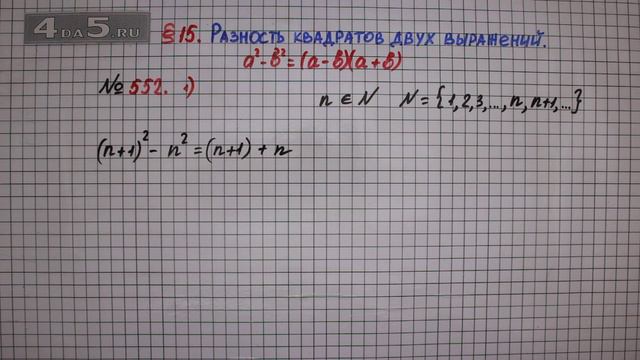 4DA5.RU
§ 15. Разность квадратов двух выражений.
a² - b² = (a - b)(a + b)
№ 552. 1)
n ∈ N N = {1, 2, 3, ..., n, n+1, ...}
(n+1)² - n² = (n+1) + n